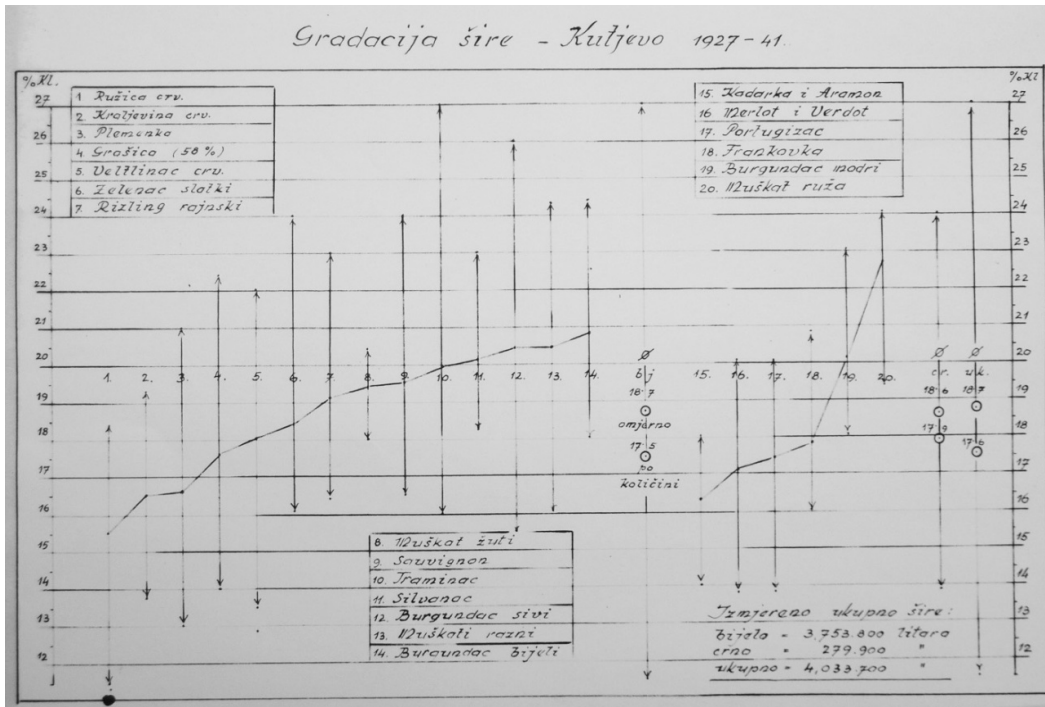 Gradacija šire - Kutjevo 1927-41.
%Kl.
27
26
25
24
23
22
21
20
19
18
17
16
15
14
13
12
1 Ružica crv.
2. Kraljevina crv.
3. Plemenka
4. Grašica (58%)
5. Veltlinac crv.
6. Zelenac slatki
7. Rizling rajnski
15. Kadarka i Aramon
16 Merlot i Verdot
17. Portugizac
18. Frankovka
19. Burgundac modri
20. Muškat ruža
%Kl
27
26
25
24
23
22
21
20
19
18
17
16
15
14
13
12
1. 2. 3. 4. 5. 6. 7. 8. 9. 10. 11. 12. 13. 14. 15. 16. 17. 18. 19. 20.
Ø
bj
18·7
omjerno
17·5
po
količini
Ø
cr.
18·6
17·9
Ø
uk.
18·7
17·6
8. Muškat žuti
9. Sauvignon
10. Traminac
11. Silvanac
12. Burgundac sivi
13. Muškati razni
14. Burgundac bijeli
Izmjereno ukupno šire:
bijelo = 3,753.800 litara
crno = 279.900 "
ukupno = 4,033.700 "